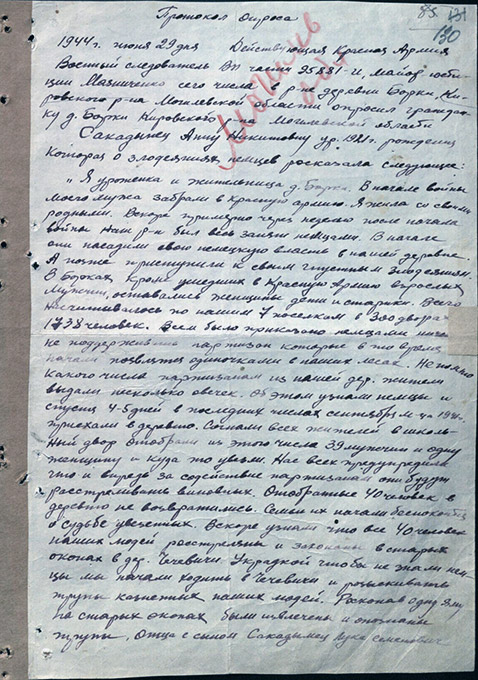 Протокол опроса
85 131
130
Могилев
1944 г. июня 29 дня Действующая Красная Армия
Военный следователь ВП части 95881-И, майор юсти-
ции сего числа в р-не деревни Борки, Ки-
ровского р-на Могилевской области опросил граждан-
ку д. Борки Кировского р-на Могилевской области
Сакадынец Анну Никитовну ур. 1921 г. рождения
которая о злодеяниях немцев рассказала следующее:
"Я уроженка и жительница д. Борки. В начале войны
моего мужа забрали в красную армию. Я жила со своими
родными. Вскоре примерно через неделю после начала
войны наш р-н был весь занят немцами. В начале
они насадили свою немецкую власть в нашей деревне.
А позже приступили к своим гнусным злодеяниям.
В Борках, кроме ушедших в Красную Армию взрослых
мужчин, оставались женщины дети и старики. Всего
насчитывалось по нашим 7 поселкам в 300 дворах
1738 человек. Всем было приказано немцами
не поддерживать партизан которые в то время
начали появлятся одиночками в наших лесах. Не помню
какого числа партизанам из нашей дер. жители
выдали несколько овечек. Об этом узнали немцы и
спустя 4-5 дней в последних числах сентября м-ца 1941 г.
приехали в деревню. Согнали всех жителей в школь-
ный двор отобрали из этого числа 39 мужчин и одну
женщину и куда то увезли. Нас всех предупредили
что и впредь за содействие партизанам они будут
расстреливать виновных. Отобратые 40 человек в
деревню не возвратились. Семьи их начали беспокоит
о судьбе увезенных. Вскоре узнали что все 40 человек
наших людей расстреляны и закопаны в старых
окопах в дер. Чечевичи. Украдкой чтобы не знали нем-
цы мы начали ходить в Чечевичи и розыскивать
трупы наших людей. Роскопав одну яму
на старых окопах были извлечены и опознаны
трупы. Отца с сыном Сакадынец Лука Семенович